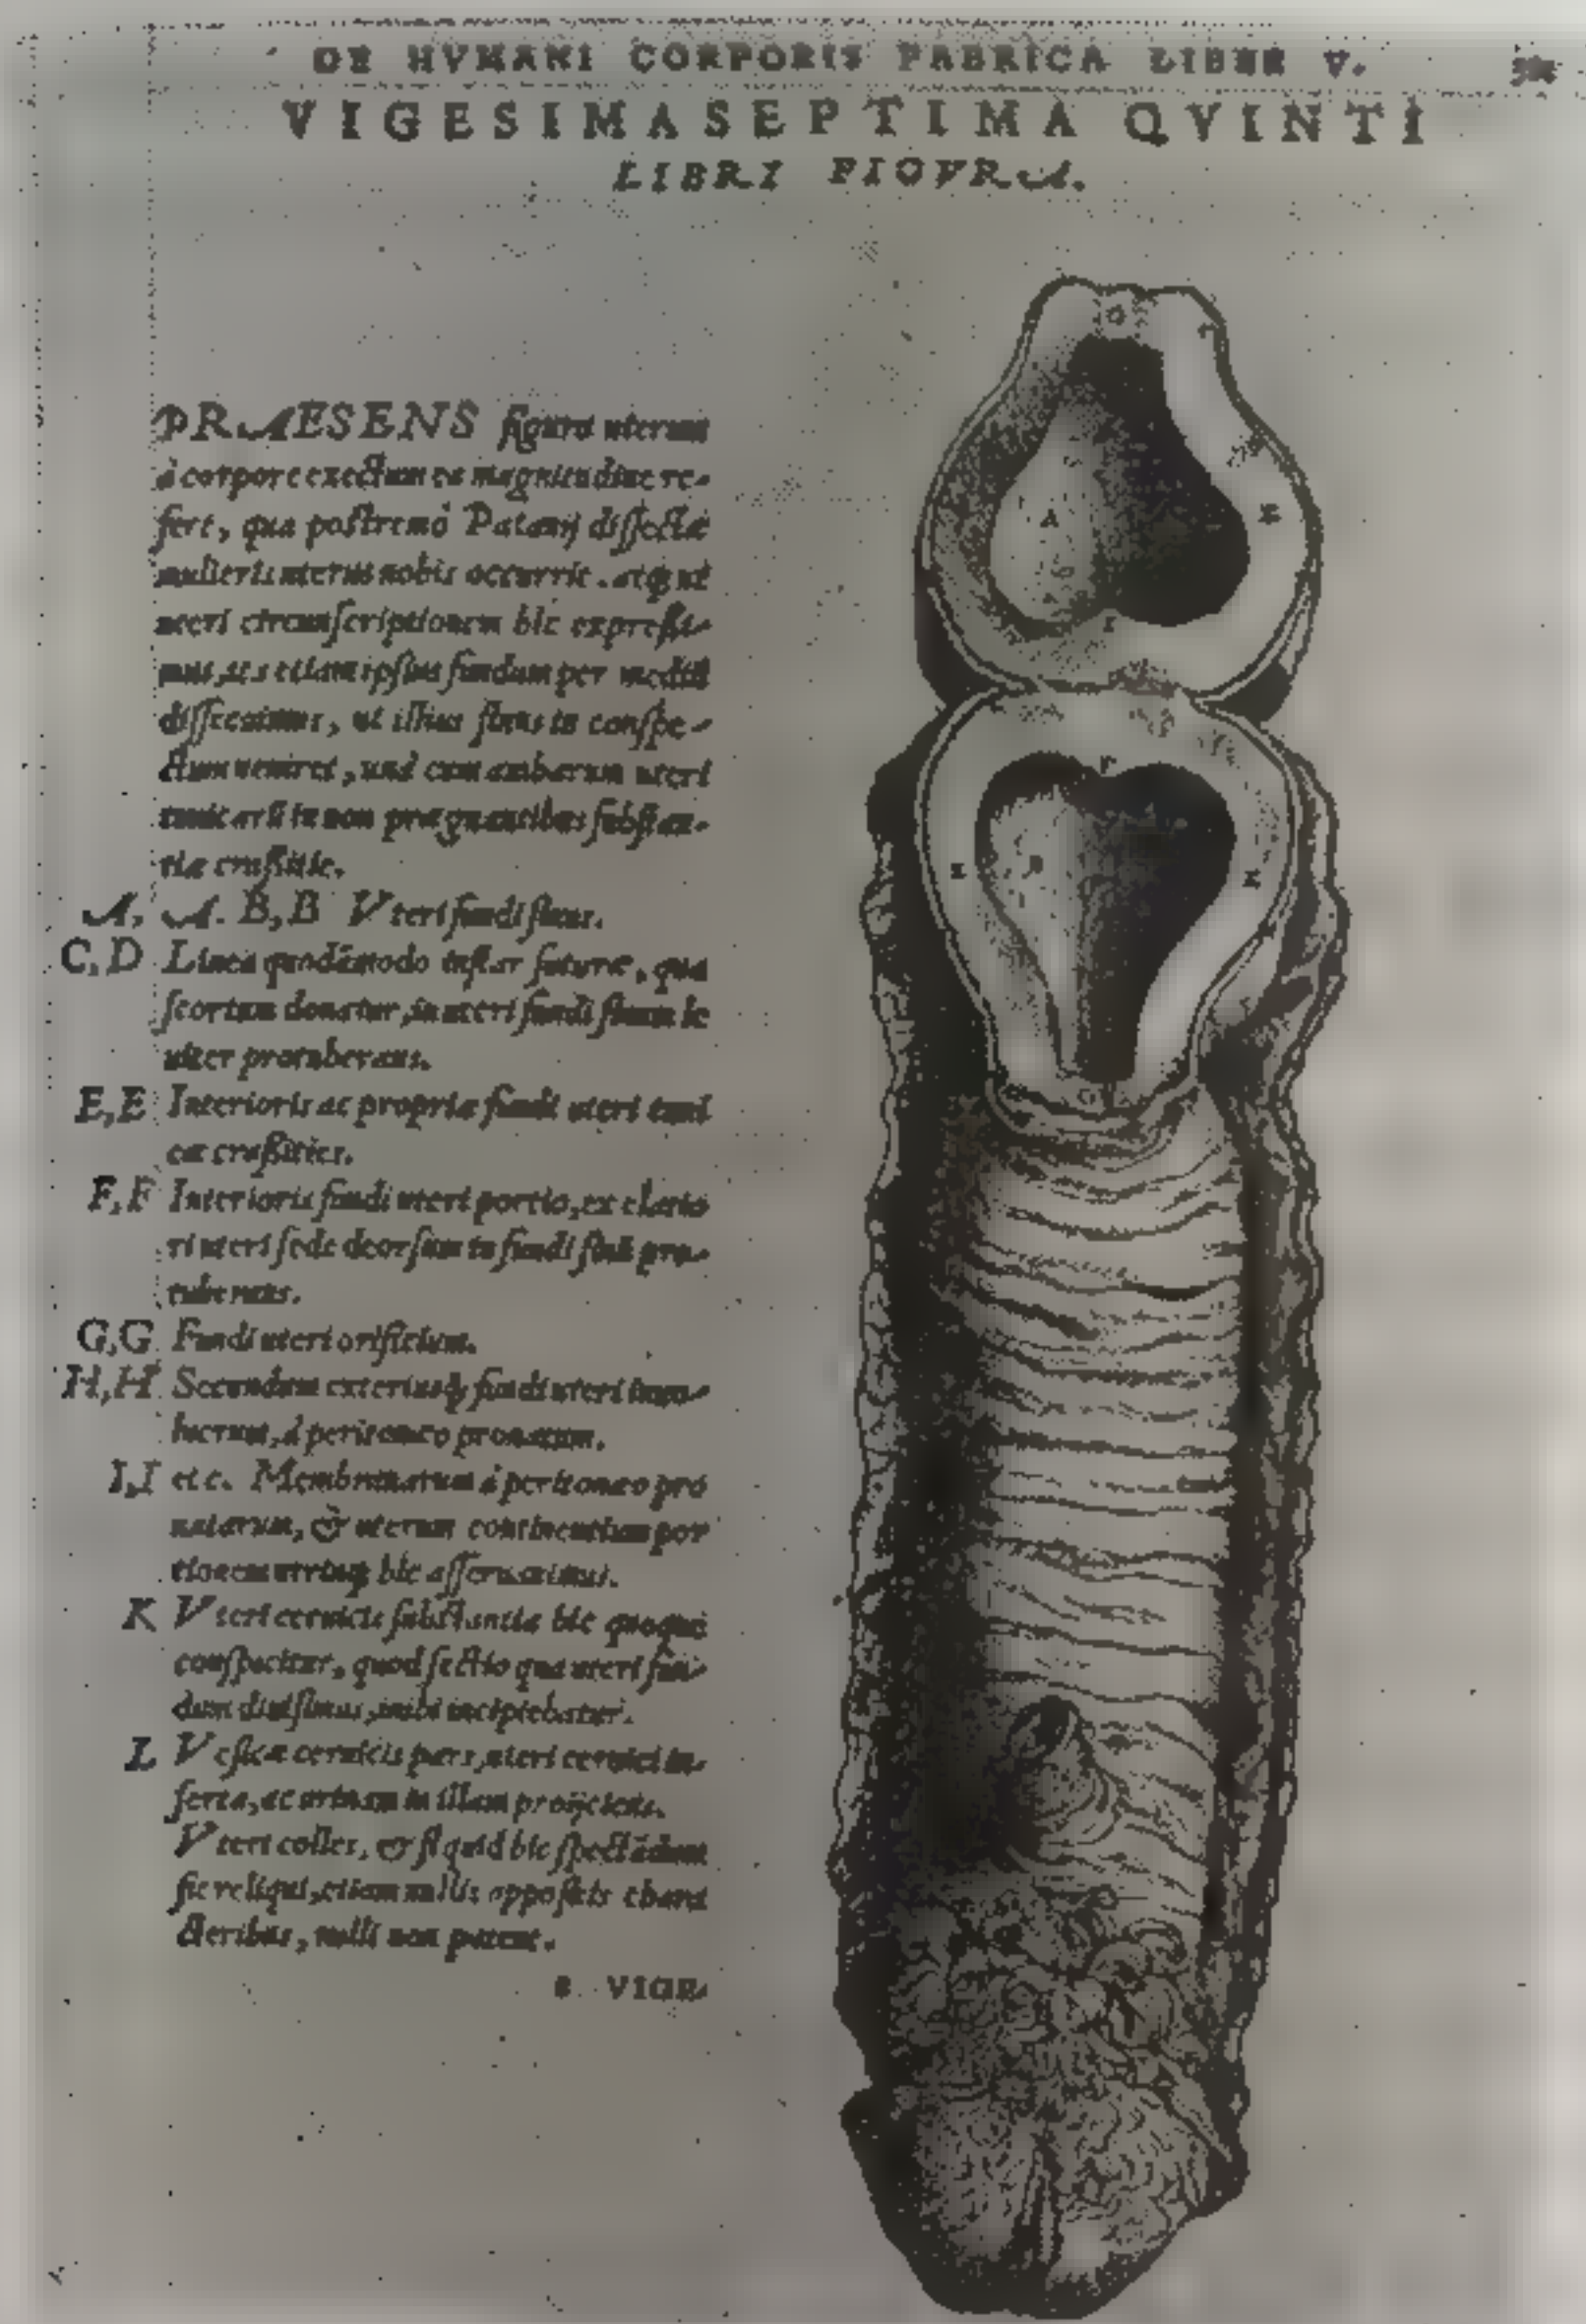 DE HVMANI CORPORIS FABRICA LIBER V.
VIGESIMASEPTIMA QVINTI
LIBRI FIGVRA.
PRAESENS figura uterum
à corpore exectum ea magnitudine re-
fert, qua postremò Patauij dissectæ
mulieris uterus nobis occurrit. atq; ut
uteri circunscriptionem hic expressi-
mus, ita etiam ipsius fundum per mediū
dissecuimus, ut illius sinus in conspe-
ctum ueniret, unà cum ambarum uteri
tunicarū in non prægnantibus substan-
tiæ crassitie.
A, A. B, B Vteri fundi sinus.
C, D Linea quodāmodo instar suturæ, qua
scortum donatur, in uteri fundi sinum le
uiter protuberans.
E, E Interioris ac propriæ fundi uteri tuni
cæ crassities.
F, F Interioris fundi uteri portio, ex elatio
ri uteri sede deorsum in fundi sinū pro-
tuberans.
G, G Fundi uteri orificium.
H, H Secundum exteriusq; fundi uteri inuo-
lucrum, à peritonæo pronatum.
I, I etc. Membranarum à peritonæo pro
natarum, & uterum continentium por
tionem utrinq; hic asseruauimus.
K Vteri ceruicis substantia hic quoque
conspicitur, quod sectio qua uteri fun-
dum diuisimus, inibi incipiebatur.
L Vesicæ ceruicis pars, uteri ceruici in-
serta, ac urinam in illam proijciens.
Vteri colles, & si quid hic spectādum
sit reliqui, etiam nullis appositis chara
cteribus, nulli non patent.
VIGE-